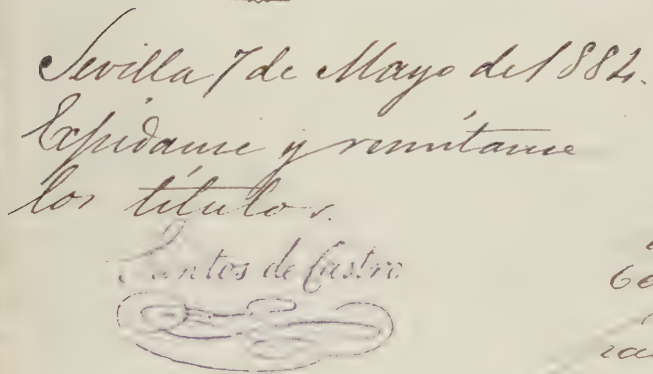 Sevilla 7 de Mayo de 1882.
Expidanse y remítanse
los títulos.
Santos de Castro